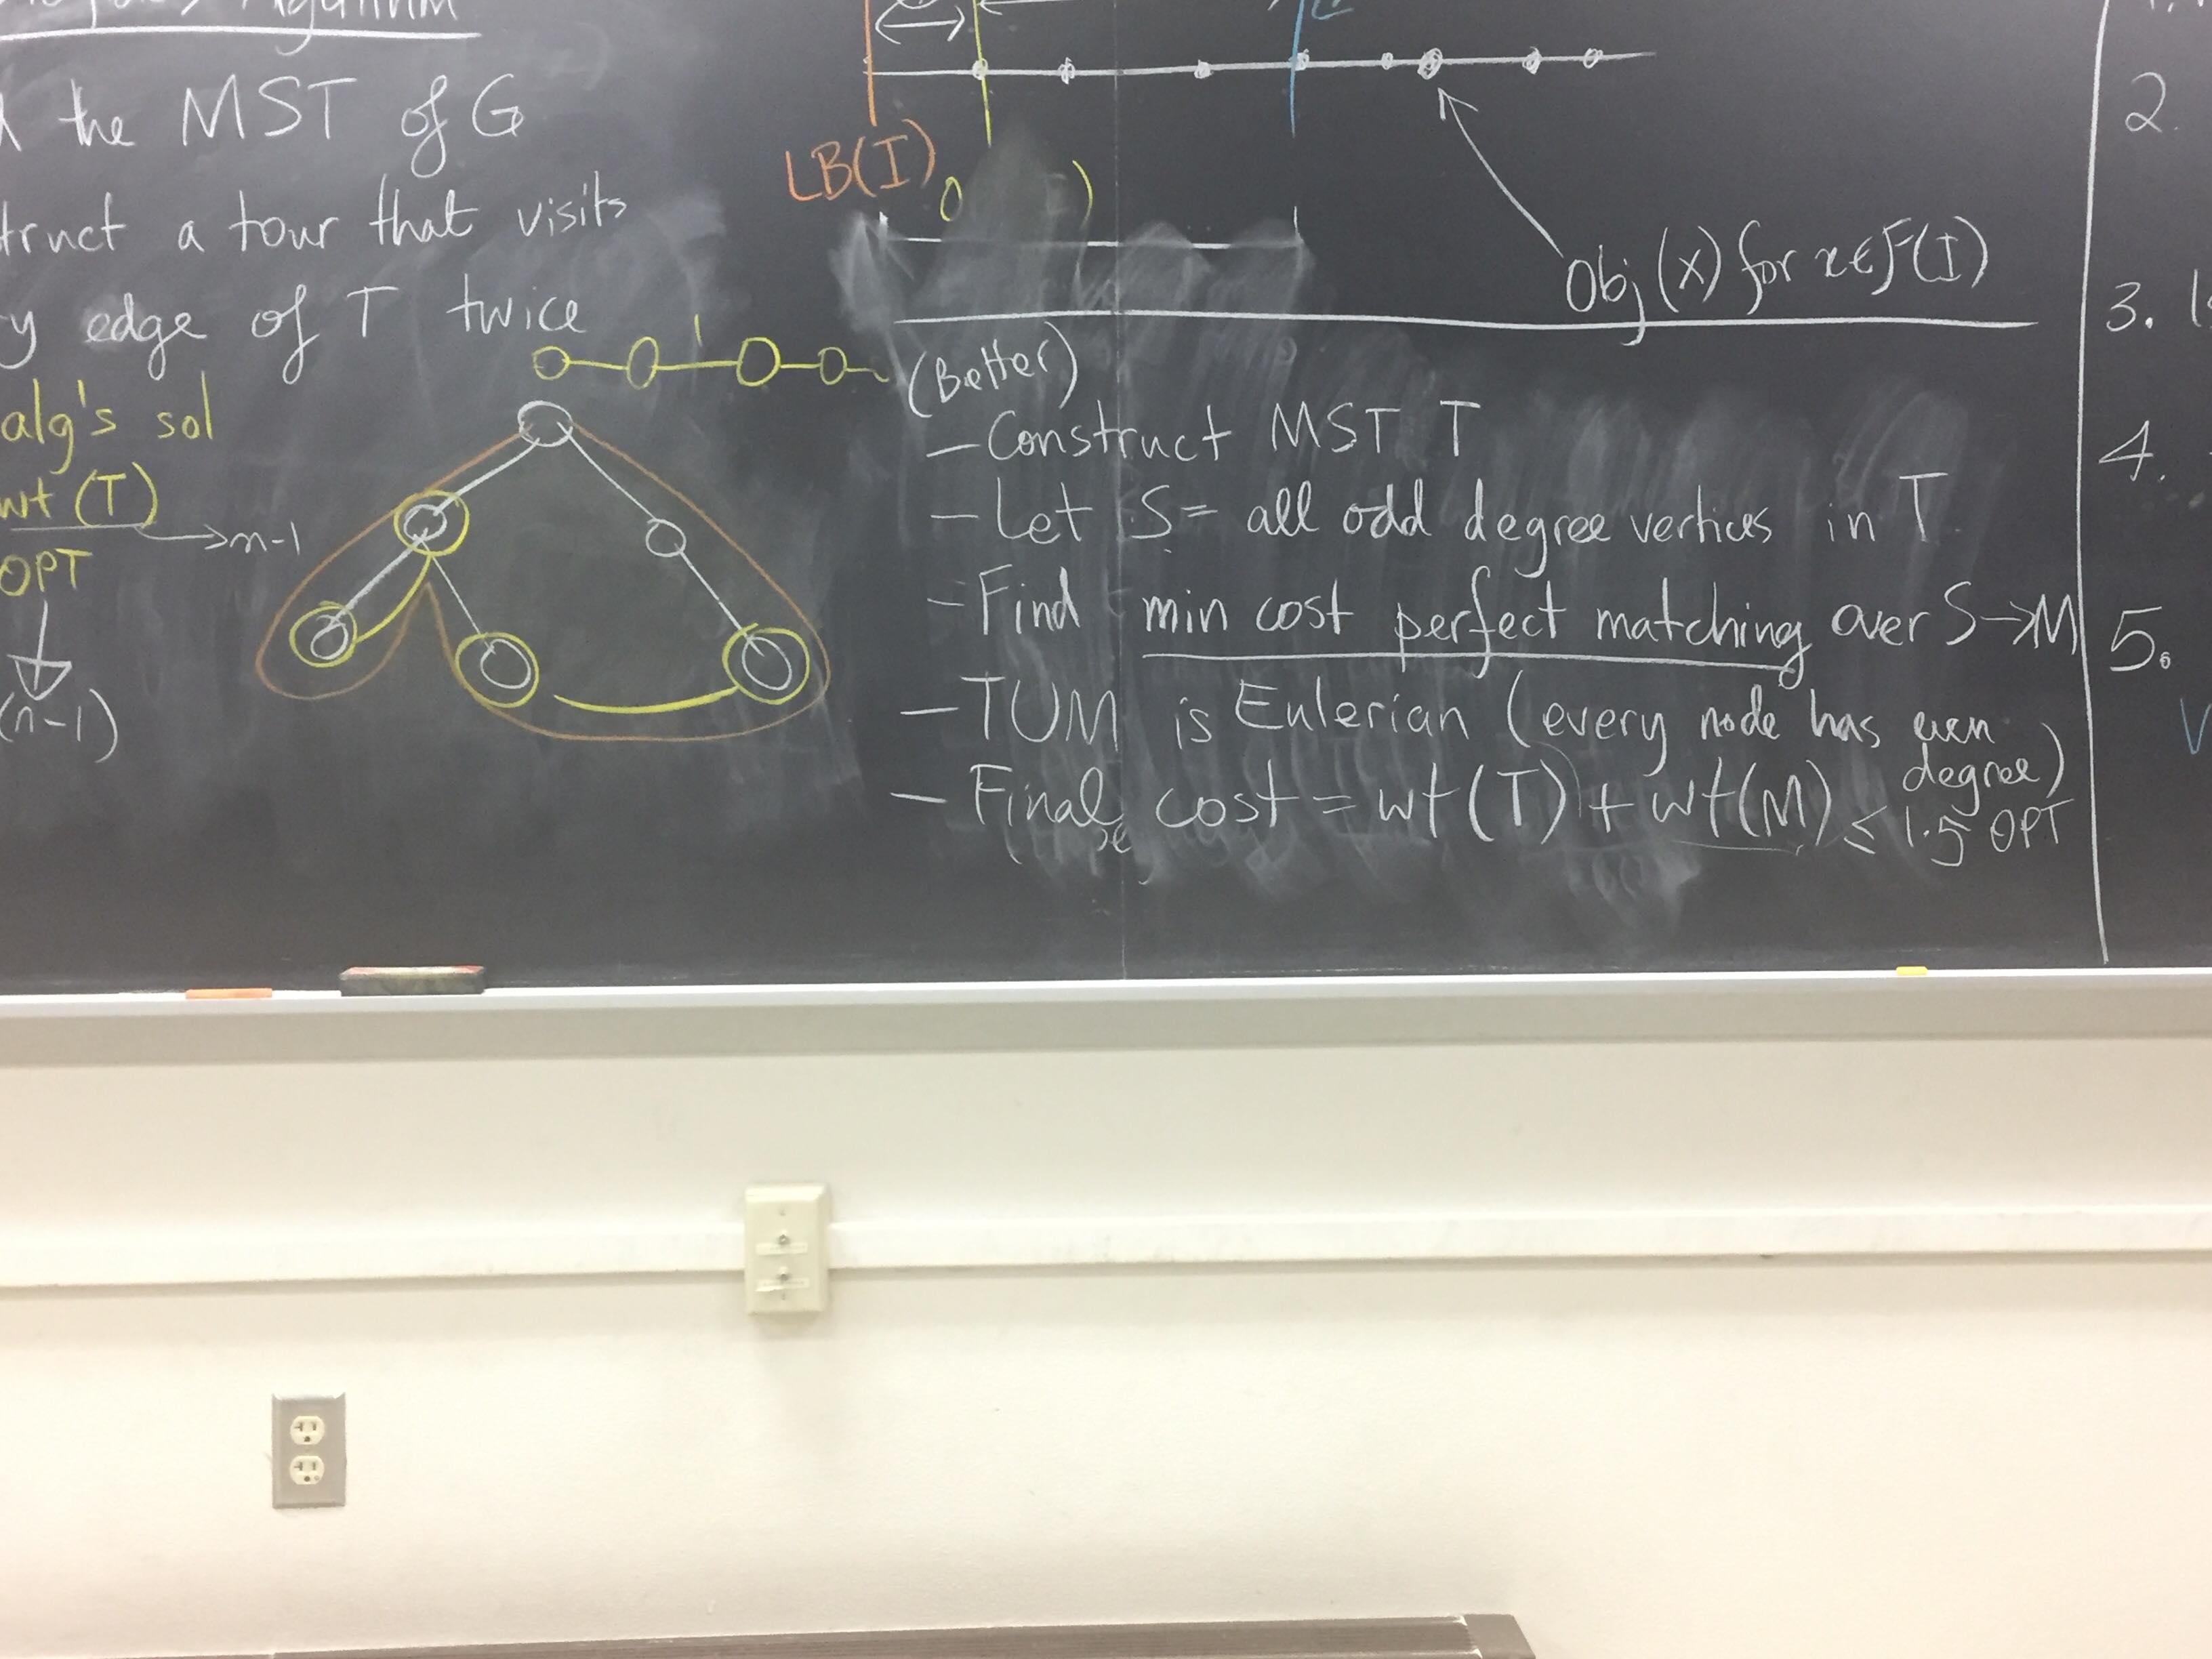 Algorithm
the MST of G
truct a tour that visits
y edge of T twice
alg's sol
wt (T)
→ n-1
OPT
(n-1)
LB(I)
0 )
Obj (x) for x ∈ F(I)
(Better)
- Construct MST T
- Let S = all odd degree vertices in T
- Find min cost perfect matching over S → M
- TUM is Eulerian (every node has even
degree)
- Final cost = wt (T) + wt (M) ≤ 1.5 OPT
2.
3.
4.
5.